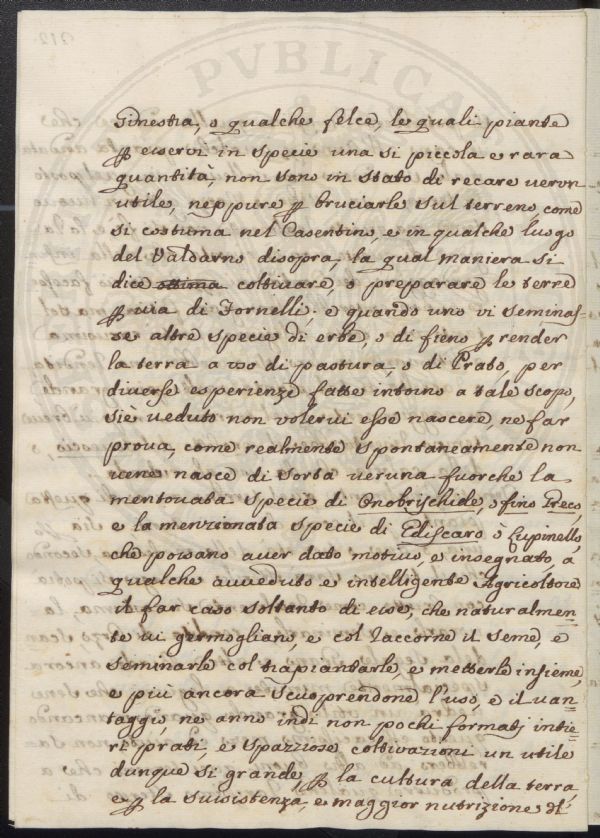 Ginestra, o qualche felce, le quali piante
ꝑ esservi in specie una si piccola e rara
quantita, non sono in stato di recare verun
utile, neppure ꝑ bruciarle sul terreno, come
si costuma nel Casentino, e in qualche luogo
del Valdarno disopra, la qual maniera si
dice ottima coltivare, o preparare le terre
ꝑ via di Fornelli; e quando uno vi seminas=
se altre specie di erbe, o di fieno ꝑ render
la terra a uso di pastura, o di Prato, per
diverse esperienze fatte intorno a tale scopo,
siè veduto non volervi esse nascere, ne far
prova, come realmente spontaneamente non
vene nasce di sorta veruna fuorche la
mentovata specie di Onobrischide, o fino Greco,
e la menzionata specie di Edisaro, ò Lupinello,
che possano aver dato motivo, e insegnato, a
qualche avveduto e intelligente Agricoltore
il far caso soltanto di esse, che naturalmen=
te vi germogliano, e col raccorne il seme, e
seminarle col trapiantarle, e metterle insieme,
e più ancora scuoprendone l'uso, e il van
taggio, ne anno indi non pochi formati intie=
ri prati, e spazziose coltivazioni un utile
dunque si grande, ꝑ la cultura della terra,
e ꝑ la susistenza, e maggior nutrizione di